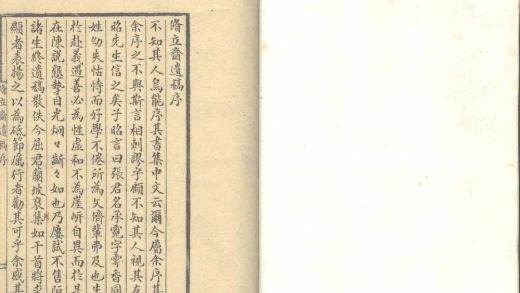 脩立齋遺稿序
不知其人烏能序其書集中文云爾今屬余序其
余序之不與斯言相刺謬乎顧不知其人視其友
昭先生信之矣子昭言曰張君名承寬字霽香同
姓幼失怙恃而好學不倦所為文儕輩弗及也生
於赴義遇善必為性虛和不為崖岸自異而於是
在陳說懇摯目光烱々齗々如也乃屢試不售阨
諸生終遺稿散佚今屈君蘭坡裒集如干首將求
顯者表揚之以為砥節厲行者勸其可乎余感其
脩立齋遺稿序